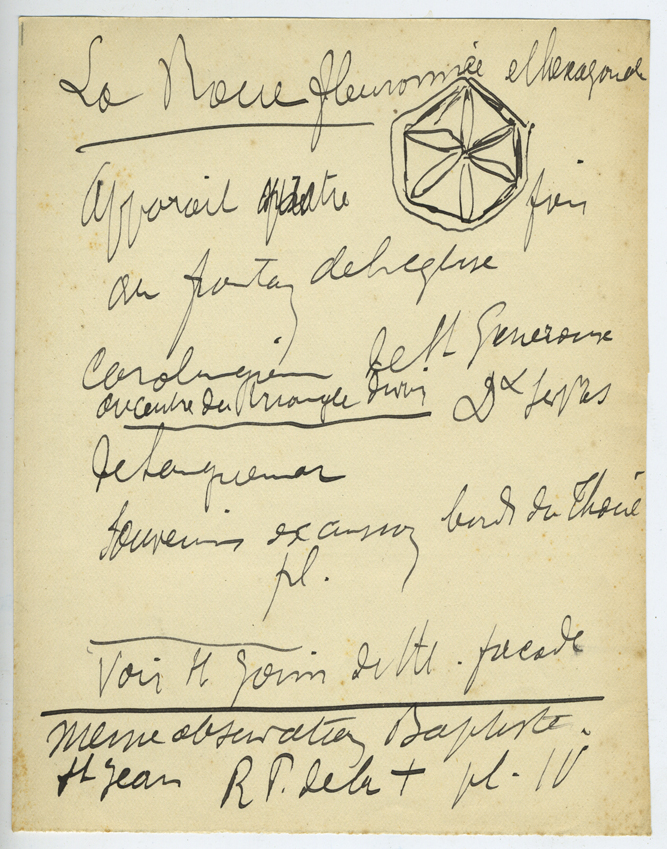 La Roue fleuronnée et hexagonale
Apparait quatre fois
au fronton de l'eglise
carolingien de St Generoux
au centre du triangle divin Dr
de Longuemar
Souvenirs excursion bords du Thouet
pl.
Voir St Jouin de M. façade
meme observation Baptiste.
St Jean R P. de la + pl. IV